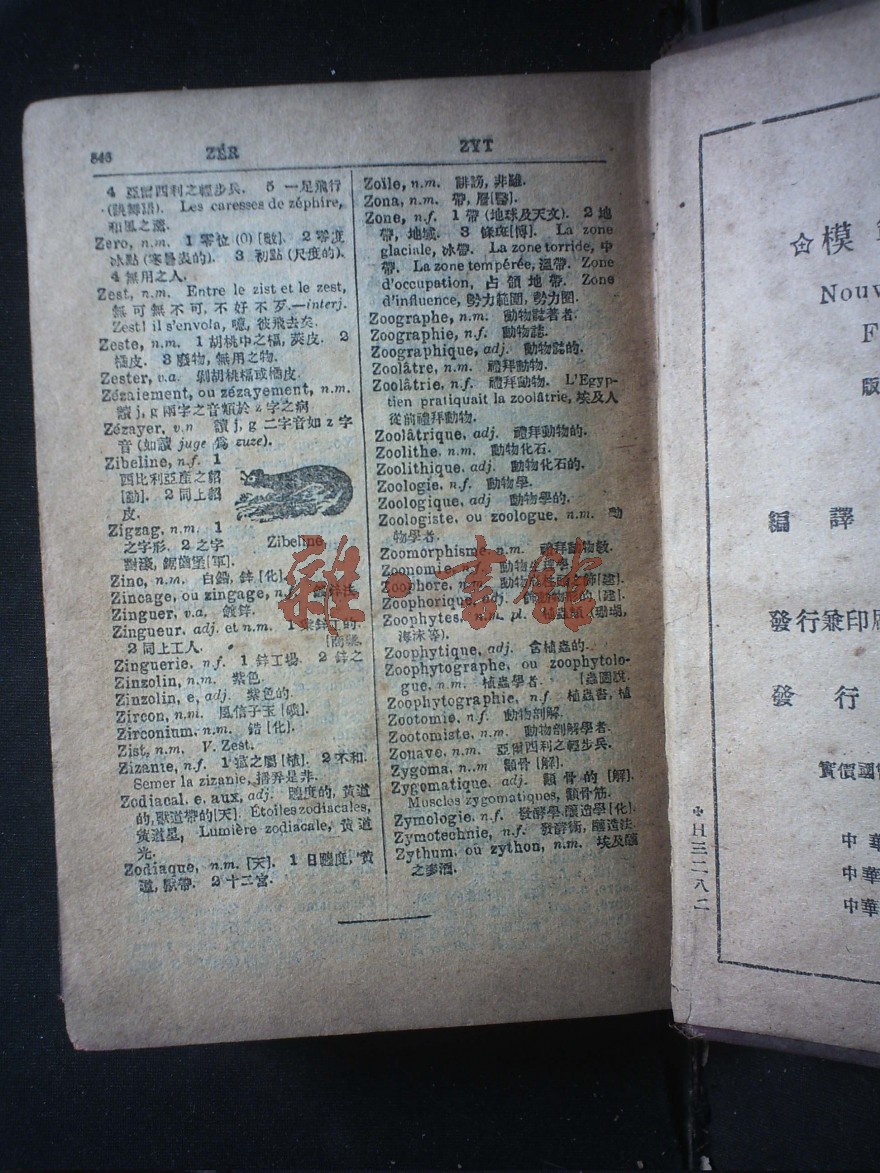 846 ZÉR ZYT
4 亞爾西利之輕步兵. 5 一足飛行
(跳舞語). Les caresses de zéphire,
和風之蕩.
Zero, n.m. 1 零位 (0) [數]. 2 零度
冰點 (寒暑表的). 3 初點 (尺度的).
4 無用之人.
Zest, n.m. Entre le zist et le zest,
無可無不可, 不好不歹.—interj.
Zest! il s'envola, 噫, 彼飛去矣.
Zeste, n.m. 1 胡桃中之福, 莢皮. 2
橘皮. 3 廢物, 無用之物.
Zester, v.a. 剝胡桃福或橘皮.
Zézaiement, ou zézayement, n.m.
讀 j, g 兩字之音類於 z 字之病
Zézayer, v.n 讀 j, g 二字音如 z 字
音 (如讀 juge 爲 zuze).
Zibeline, n.f. 1
西比利亞產之貂
[動]. 2 同上貂
皮.
Zigzag, n.m. 1
之字形. 2 之字
對濠, 鋸齒堡 [軍].
Zibeline
Zinc, n.m. 白鉛, 鋅 [化].
Zincage, ou zingage, n.
Zinguer, v.a. 鍍鋅.
Zingueur. adj. et n.m. 1 業鋅工的.
2 同上工人.
Zinguerie, n.f. 1 鋅工場. 2 鋅之
Zinzolin, n.m. 紫色.
Zinzolin, e, adj. 紫色的.
Zircon, n.m. 風信子玉 [礦].
Zirconium, n.m. 鋯 [化].
Zist, n.m. V. Zest.
Zizanie, n.f. 1 之屬 [植]. 2 不和.
Semer la zizanie, 播弄是非.
Zodiacal, e, aux, adj. 躔度的, 黃道
的, 獸道帶的 [天]. Étoiles zodiacales,
黃道星, Lumière zodiacale, 黃道
光.
Zodiaque, n.m. [天]. 1 日躔度, 黃
道, 獸帶. 2 十二宮.
Zoïle, n.m. 誹謗, 非難.
Zona, n.m. 帶, 層 [醫].
Zone, n.f. 1 帶 (地球及天文). 2 地
帶, 地域. 3 條斑 [博]. La zone
glaciale, 冰帶. La zone torride, 中
帶. La zone tempérée, 溫帶. Zone
d'occupation, 占領地帶. Zone
d'influence, 勢力範圍, 勢力圈.
Zoographe, n.m. 動物誌著者.
Zoographie, n.f. 動物誌.
Zoographique, adj. 動物誌的.
Zoolâtre, n.m. 禮拜動物.
Zoolâtrie, n.f. 禮拜動物. L'Egyp-
tien pratiquait la zoolâtrie, 埃及人
從前禮拜動物.
Zoolâtrique, adj. 禮拜動物的.
Zoolithe, n.m. 動物化石.
Zoolithique, adj. 動物化石的.
Zoologie, n.f. 動物學.
Zoologique, adj 動物學的.
Zoologiste, ou zoologue, n.m. 動
物學者.
Zoomorphisme, n.m. 禮拜動物教.
Zoonomie,
Zoophore, n.m. [建].
Zoophorique, adj. [建].
Zoophytes, n.m. pl. 植蟲類 (珊瑚,
海沫等).
Zoophytique, adj. 含植蟲的.
Zoophytographe, ou zoophytolo-
gue, n.m. 植蟲學者. [蟲圖說.
Zoophytographie, n.f 植蟲書, 植
Zootomie, n.f. 動物剖解.
Zootomiste, n.m. 動物剖解學者.
Zouave, n.m. 亞爾西利之輕步兵.
Zygoma, n.m 顴骨 [解].
Zygomatique, adj. 顴骨的 [解].
Muscles zygomatiques, 顴骨筋.
Zymologie, n.f. 發酵學, 釀造學 [化].
Zymotechnie, n.f. 發酵術, 釀造法
Zythum, ou zython, n.m. 埃及釀
之麥酒.
雜·書館
模
Nouv
F
版
編譯
發行兼印
發行
實價國
中華
中華
中華
H三二八二